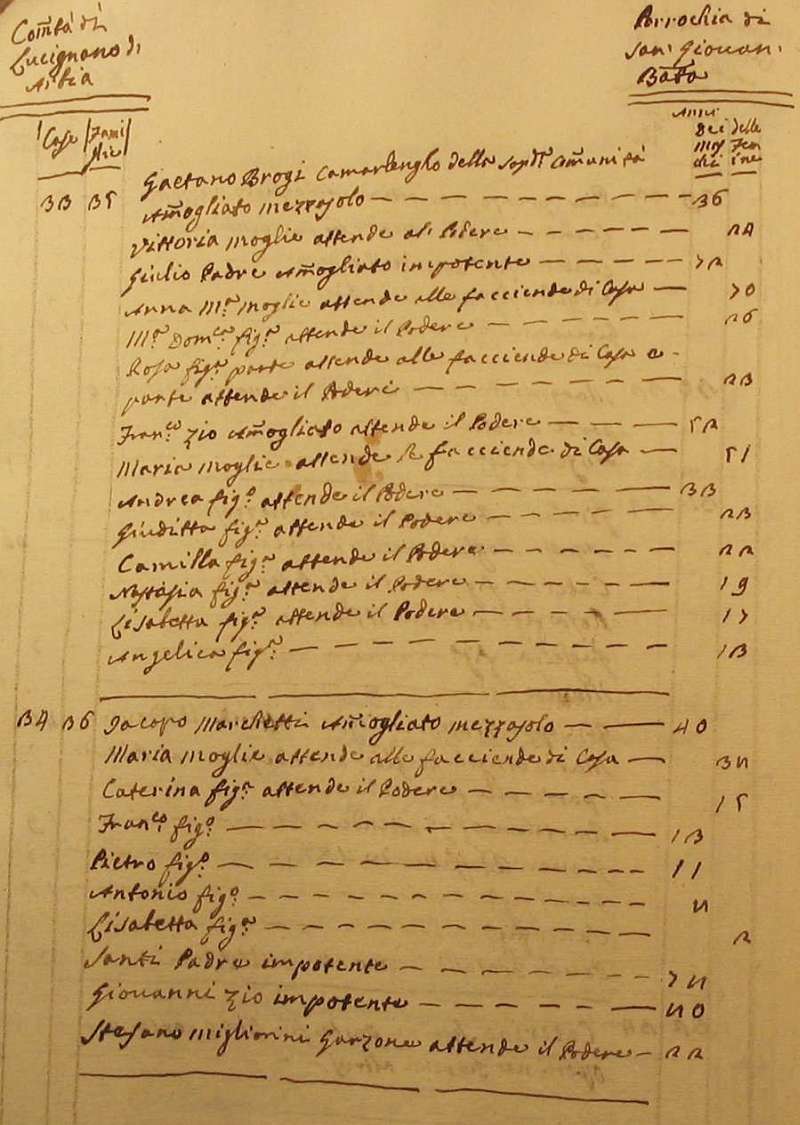 Com̃tà di
Lucignano di
Arbia
Parrochia di
San Giovan
Batta
Case Fami
glie
Anni
Dei delle
Mas Fem
chi ine
33 35 Gaetano Brogi Camarlengho della sopd.ª Com̃unità
Am̃ogliato mezzajolo 36
Vittoria moglie attende al Podere 24
Giulio Padre Am̃ogliato impotente 72
Anna M.ª moglie attende alle facciende di Casa 70
M.ª Dom.ca fig.ª attende il Podere 26
Rosa fig.ª parte attende alle facciende di Casa e
parte attende il Podere 23
Fran.co zio Am̃ogliato attende il Podere 52
Maria moglie attende le facciende di Casa 51
Andrea fig.º attende il Podere 33
Giuditta fig.ª attende il Podere 23
Camilla fig.ª attende il Podere 22
Nastasia fig.ª attende il Podere 19
Lisabetta fig.ª attende il Podere 17
Angelica fig.ª 13
34 36 Jacopo Marchetti Am̃ogliato mezzajolo 40
Maria moglie attende alle facciende di Casa 38
Caterina fig.ª attende il Podere 15
Fran.co fig.º 13
Pietro fig.º 11
Antonio fig.º 8
Lisabetta fig.ª 2
Santi Padre impotente 78
Giovanni zio impotente 80
Stefano Migliorini Garzone attende il Podere 22